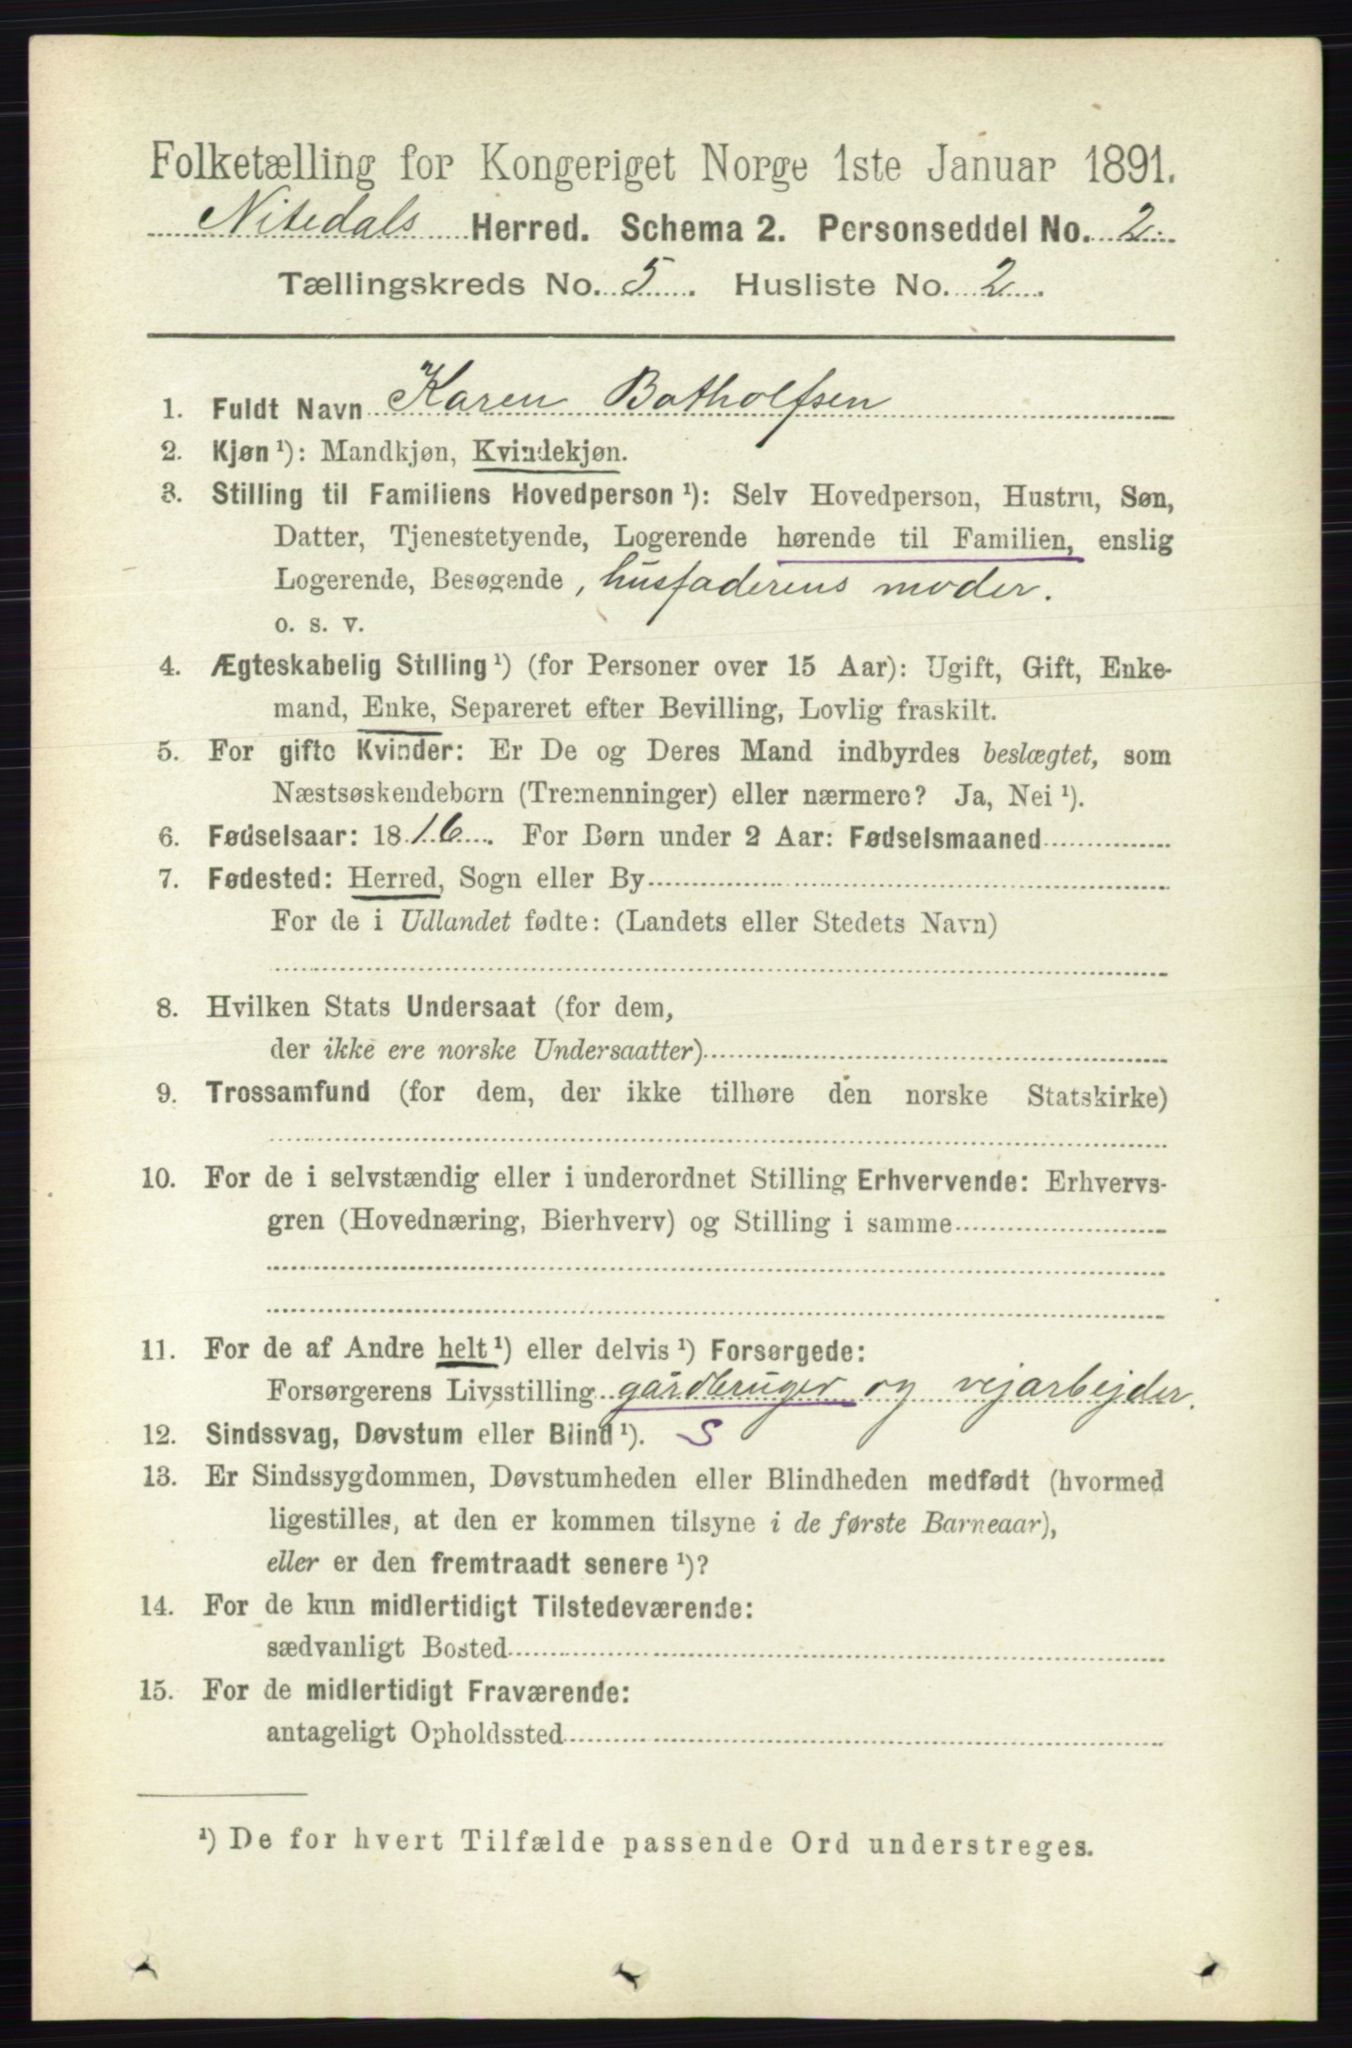 Folketælling for Kongeriget Norge 1ste Januar 1891.
Nitedals Herred. Schema 2. Personseddel No. 2.
Tællingskreds No. 5. Husliste No. 2.
1. Fuldt Navn Karen Botholfsen
2. Kjøn ¹): Mandkjøn, Kvindekjøn.
3. Stilling til Familiens Hovedperson ¹): Selv Hovedperson, Hustru, Søn,
Datter, Tjenestetyende, Logerende hørende til Familien, enslig
Logerende, Besøgende, husfaderens moder.
o. s. v.
4. Ægteskabelig Stilling ¹) (for Personer over 15 Aar): Ugift, Gift, Enke-
mand, Enke, Separeret efter Bevilling, Lovlig fraskilt.
5. For gifte Kvinder: Er De og Deres Mand indbyrdes beslægtet, som
Næstsøskendebørn (Tremenninger) eller nærmere? Ja, Nei ¹).
6. Fødselsaar: 1816. For Børn under 2 Aar: Fødselsmaaned
7. Fødested: Herred, Sogn eller By
For de i Udlandet fødte: (Landets eller Stedets Navn)
8. Hvilken Stats Undersaat (for dem,
der ikke ere norske Undersaatter)
9. Trossamfund (for dem, der ikke tilhøre den norske Statskirke)
10. For de i selvstændig eller i underordnet Stilling Erhvervende: Erhvervs-
gren (Hovednæring, Bierhverv) og Stilling i samme
11. For de af Andre helt ¹) eller delvis ¹) Forsørgede:
Forsørgerens Livsstilling gårdbruger og vejarbejder.
12. Sindssvag, Døvstum eller Blind ¹). S
13. Er Sindssygdommen, Døvstumheden eller Blindheden medfødt (hvormed
ligestilles, at den er kommen tilsyne i de første Barneaar),
eller er den fremtraadt senere ¹)?
14. For de kun midlertidigt Tilstedeværende:
sædvanligt Bosted
15. For de midlertidigt Fraværende:
antageligt Opholdssted
¹) De for hvert Tilfælde passende Ord understreges.